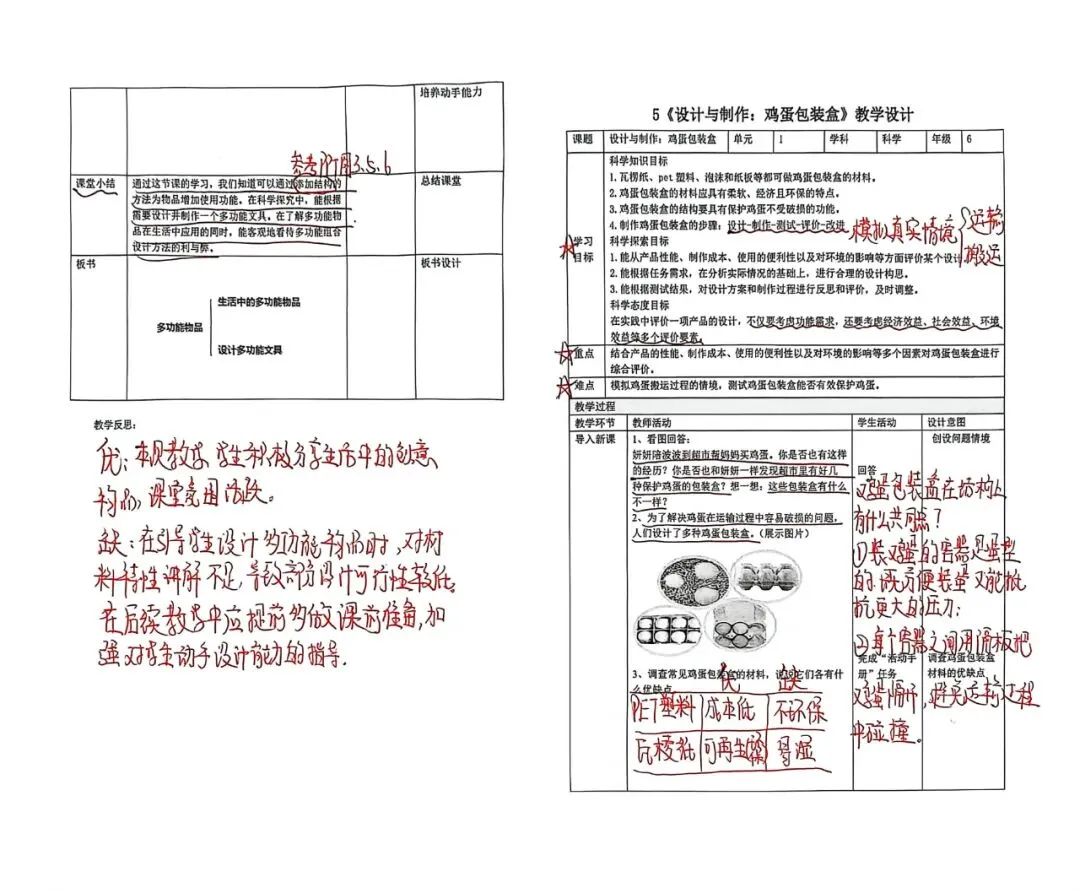 培养动手能力
参考阶用3.5.6
课堂小结
通过这节课的学习，我们知道可以通过添加结构的
方法为物品增加使用功能。在科学探究中，能根据
需要设计并制作一个多功能文具。在了解多功能物
品在生活中应用的同时，能客观地看待多功能组合
设计方法的利与弊。
总结课堂
板书
生活中的多功能物品
多功能物品
设计多功能文具
板书设计
教学反思：
优：本观教学学生积极分享生活中的创意
物品，课堂氛围活跃。
缺：在引导学生设计多功能物品时，对材
料特性讲解不足，导致部分设计可行性较低。
在后续教学中应提前多做课前准备，加
强对学生动手设计能力的指导。
5《设计与制作：鸡蛋包装盒》教学设计
课题 设计与制作：鸡蛋包装盒 单元 1 学科 科学 年级 6
学习
目标
科学知识目标
1.瓦楞纸、pet塑料、泡沫和纸板等都可做鸡蛋包装盒的材料。
2.鸡蛋包装盒的材料应具有柔软、经济且环保的特点。
3.鸡蛋包装盒的结构要具有保护鸡蛋不受破损的功能。
4.制作鸡蛋包装盒的步骤：设计-制作-测试-评价-改进
模拟真实情境 运输
搬运
科学探索目标
1.能从产品性能、制作成本、使用的便利性以及对环境的影响等方面评价某个设计
2.能根据任务需求，在分析实际情况的基础上，进行合理的设计构思。
3.能根据测试结果，对设计方案和制作过程进行反思和评价，及时调整。
科学态度目标
在实践中评价一项产品的设计，不仅要考虑功能需求，还要考虑经济效益、社会效益、环境
效益等多个评价要素。
重点 结合产品的性能、制作成本、使用的便利性以及对环境的影响等多个因素对鸡蛋包装盒进行
综合评价。
难点 模拟鸡蛋搬运过程的情境，测试鸡蛋包装盒能否有效保护鸡蛋。
教学过程
教学环节 教师活动 学生活动 设计意图
导入新课
1、看图回答：
妍妍陪波波到超市帮妈妈买鸡蛋。你是否也有这样
的经历？你是否也和妍妍一样发现超市里有好几
种保护鸡蛋的包装盒？想一想：这些包装盒有什么
不一样？
2、为了解决鸡蛋在运输过程中容易破损的问题，
人们设计了多种鸡蛋包装盒。（展示图片）
3、调查常见鸡蛋包装盒的材料，说说它们各有什
么优缺点
优 缺
PET塑料 成本低 不环保
瓦楞纸 可再生 易湿
回答
鸡蛋包装盒在结构上
有什么共同点？
①装鸡蛋的容器是蛋型
的，既方便装蛋又能抵
抗更大的压力；
②每个容器之间用隔板把
鸡蛋隔开，避免运输过程
中碰撞。
完成“活动手
册”任务
创设问题情境
调查鸡蛋包装盒
材料的优缺点